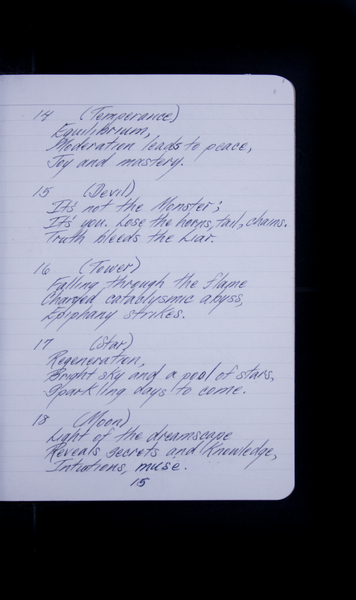 14 (Temperance)
Equilibrium,
Moderation leads to peace,
Joy and mastery.
15 (Devil)
It's not the Monster;
It's you. Lose the horns, tail, chains.
Truth bleeds the Liar.
16 (Tower)
Falling through the flame
Charged cataclysmic abyss,
Epiphany strikes.
17 (Star)
Regeneration,
Bright sky and a pool of stars,
Sparkling days to come.
18 (Moon)
Light of the dreamscape
Reveals secrets and Knowledge,
Intuitions, muse.
15